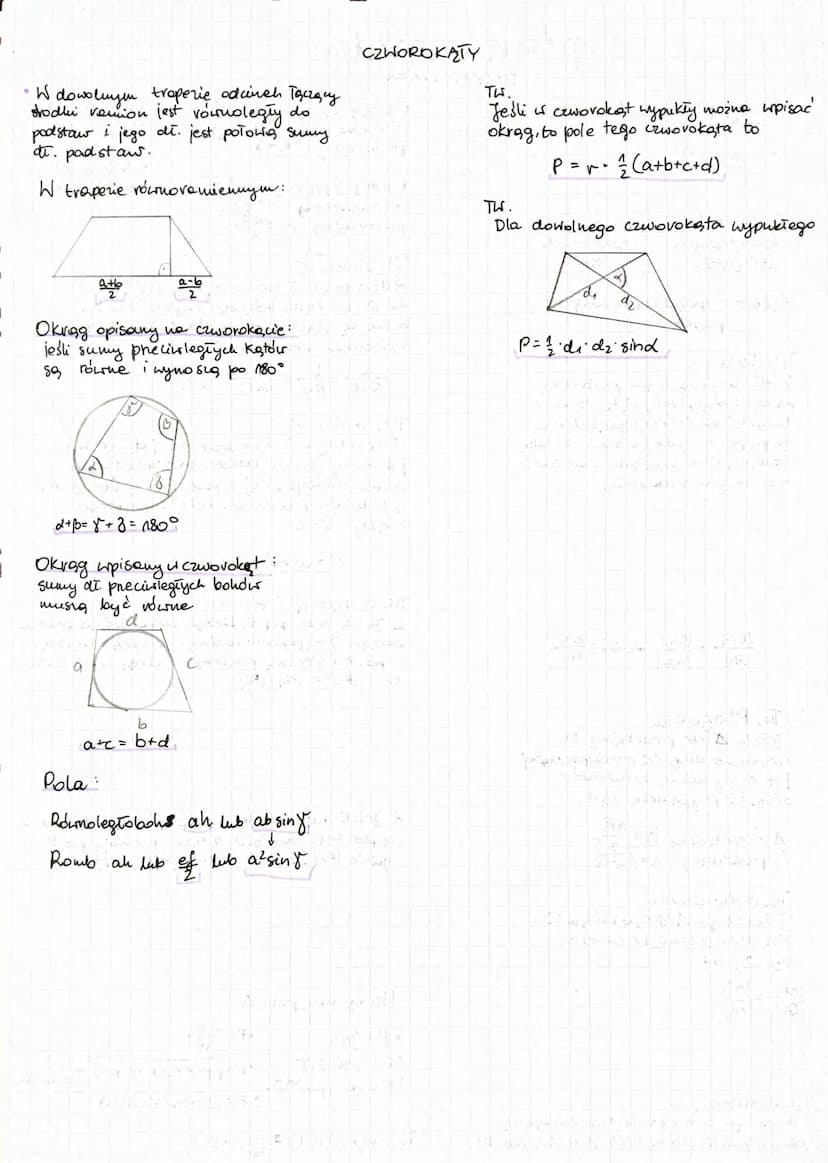 CZWOROKĄTY
• W dowolnym trapezie odcinek łączący
środki ramion jest równoległy do
podstaw i jego dł. jest połową sumy
dł. podstaw.
W trapezie równoramiennym:
a+b/2 a-b/2
Okrąg opisany na czworokącie:
jeśli sumy przeciwległych kątów
są równe i wynoszą po 180°
γ β
α δ
α+β=γ+δ=180°
Okrąg wpisany w czworokąt:
sumy dł przeciwległych boków
muszą być równe
d
a c
b
a+c = b+d
Pola:
Równoległoboks ah lub absinγ
↓
Romb ah lub ef/2 lub a²sinγ
TW.
Jeśli w czworokąt wypukły można wpisać
okrąg, to pole tego czworokąta to
P = r · 1/2 (a+b+c+d)
TW.
Dla dowolnego czworokąta wypukłego
α
d₁ d₂
P=1/2·d₁·d₂·sinα